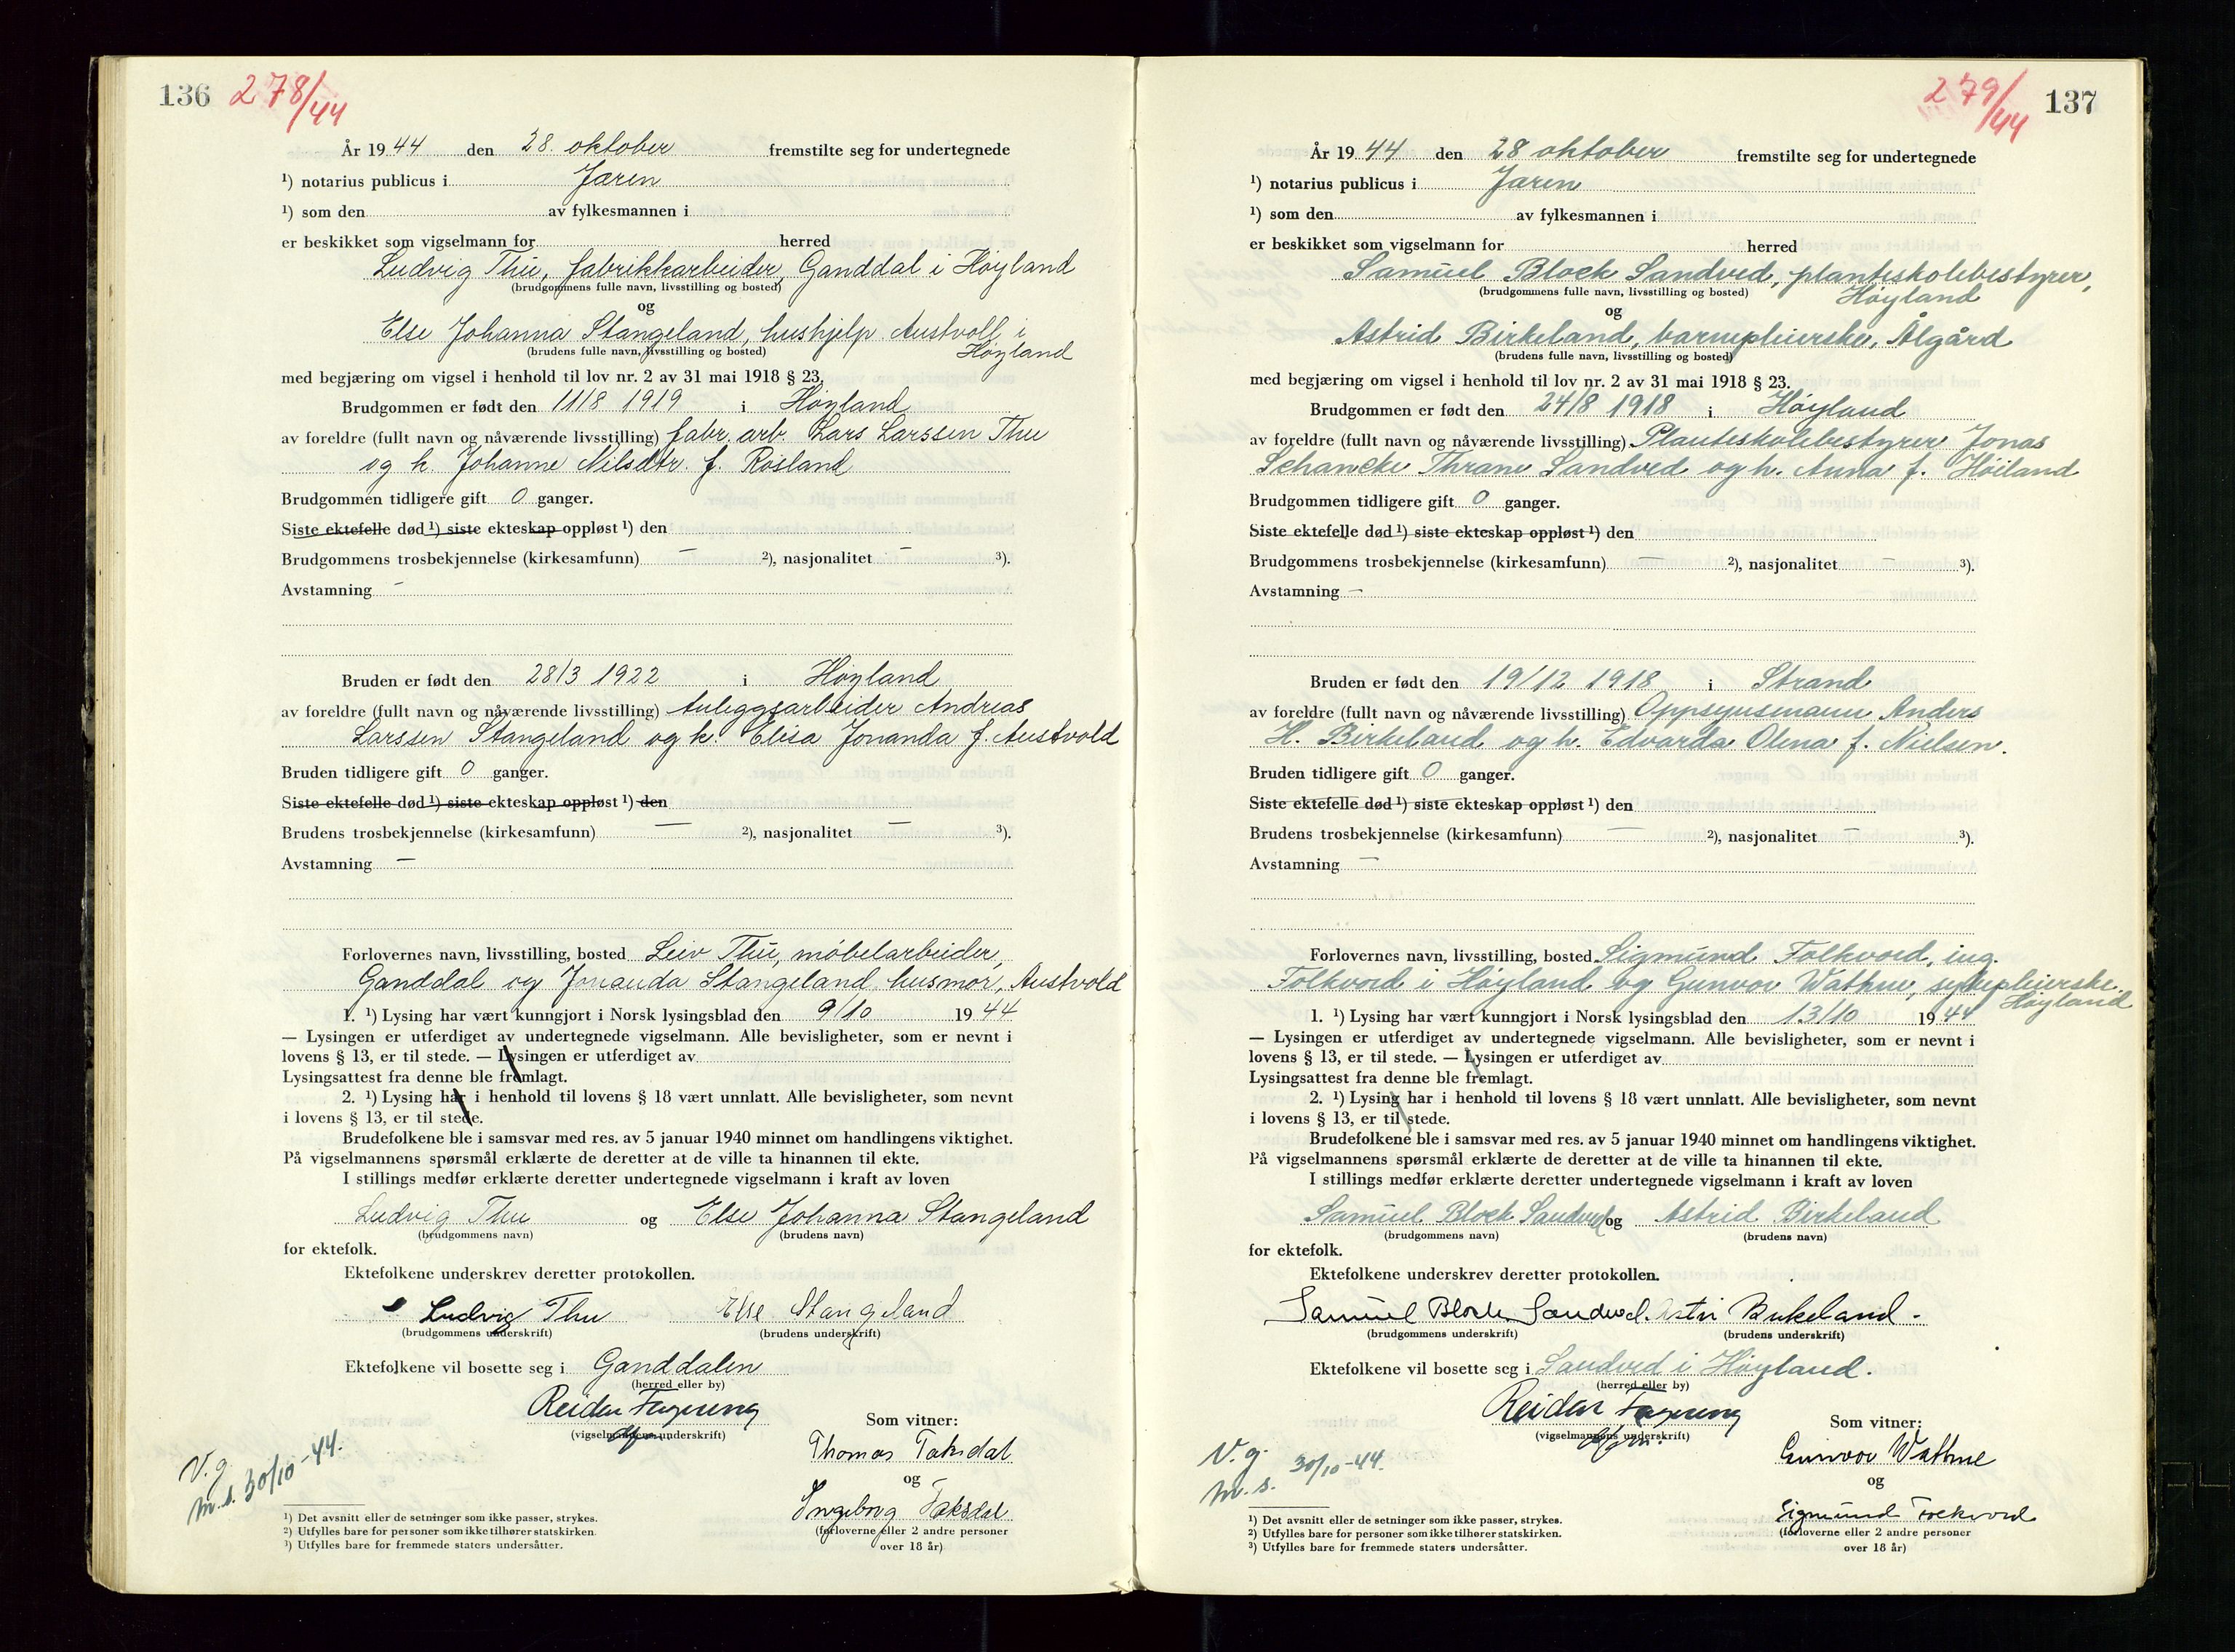 136 278/44
År 1944 den 28. oktober fremstilte seg for undertegnede
¹) notarius publicus i Jæren
¹) som den av fylkesmannen i
er beskikket som vigselmann for herred
Ludvig Thu, fabrikkarbeider, Ganddal i Høyland
(brudgommens fulle navn, livsstilling og bosted)
og
Else Johanna Stangeland, hushjelp Austvoll i
Høyland
(brudens fulle navn, livsstilling og bosted)
med begjæring om vigsel i henhold til lov nr. 2 av 31 mai 1918 § 23.
Brudgommen er født den 11/8 1919 i Høyland
av foreldre (fullt navn og nåværende livsstilling) fabr. arb. Lars Larssen Thu
og h. Johanne Nilsdtr. f. Røsland
Brudgommen tidligere gift 0 ganger.
Siste ektefelle død ¹) siste ekteskap oppløst ¹) den
Brudgommens trosbekjennelse (kirkesamfunn) — ²), nasjonalitet — ³).
Avstamning —
Bruden er født den 28/3 1922 i Høyland
av foreldre (fullt navn og nåværende livsstilling) Anleggsarbeider Andreas
Larssen Stangeland og h. Elisa Jonanda f. Austvold
Bruden tidligere gift 0 ganger.
Siste ektefelle død ¹) siste ekteskap oppløst ¹) den
Brudens trosbekjennelse (kirkesamfunn) — ²), nasjonalitet — ³).
Avstamning —
Forlovernes navn, livsstilling, bosted Leiv Thu, møbelarbeider,
Ganddal og Jonanda Stangeland husmor, Austvold
1. ¹) Lysing har vært kunngjort i Norsk lysingsblad den 9/10 1944
— Lysingen er utferdiget av undertegnede vigselmann. Alle bevisligheter, som er nevnt i
lovens § 13, er til stede. — Lysingen er utferdiget av
Lysingsattest fra denne ble fremlagt.
2. ¹) Lysing har i henhold til lovens § 18 vært unnlatt. Alle bevisligheter, som nevnt
i lovens § 13, er til stede.
Brudefolkene ble i samsvar med res. av 5 januar 1940 minnet om handlingens viktighet.
På vigselmannens spørsmål erklærte de deretter at de ville ta hinannen til ekte.
I stillings medfør erklærte deretter undertegnede vigselmann i kraft av loven
Ludvig Thu og Else Johanna Stangeland
(brudgommens navn) (brudens navn)
for ektefolk.
Ektefolkene underskrev deretter protokollen.
Ludvig Thu Else Stangeland
(brudgommens underskrift) (brudens underskrift)
Ektefolkene vil bosette seg i Ganddalen
(herred eller by)
Reidar
(vigselmannens underskrift)
Som vitner:
Thomas Taksdal
og
Ingeborg Taksdal
(forloverne eller 2 andre personer
over 18 år)
V.g.
m.s. 30/10-44.
¹) Det avsnitt eller de setninger som ikke passer, strykes.
²) Utfylles bare for personer som ikke tilhører statskirken.
³) Utfylles bare for fremmede staters undersåtter.
279/44 137
År 1944 den 28 oktober fremstilte seg for undertegnede
¹) notarius publicus i Jæren
¹) som den av fylkesmannen i
er beskikket som vigselmann for herred
Samuel Block Sandved, planteskolebestyrer,
Høyland
(brudgommens fulle navn, livsstilling og bosted)
og
Astrid Birkeland, barnepleierske, Ålgård
(brudens fulle navn, livsstilling og bosted)
med begjæring om vigsel i henhold til lov nr. 2 av 31 mai 1918 § 23.
Brudgommen er født den 24/8 1918 i Høyland
av foreldre (fullt navn og nåværende livsstilling) Planteskolebestyrer Jonas
Schancke Thrane Sandved og h. Anna f. Høiland
Brudgommen tidligere gift 0 ganger.
Siste ektefelle død ¹) siste ekteskap oppløst ¹) den
Brudgommens trosbekjennelse (kirkesamfunn) — ²), nasjonalitet — ³).
Avstamning —
Bruden er født den 19/12 1918 i Strand
av foreldre (fullt navn og nåværende livsstilling) Oppsynsmann Anders
H. Birkeland og h. Edvarda Olena f. Nielsen.
Bruden tidligere gift 0 ganger.
Siste ektefelle død ¹) siste ekteskap oppløst ¹) den
Brudens trosbekjennelse (kirkesamfunn) — ²), nasjonalitet — ³).
Avstamning —
Forlovernes navn, livsstilling, bosted Sigmund Folkvord, ing.
Folkvord i Høyland og Gunvor Wathne, sykepleierske.
Høyland
1. ¹) Lysing har vært kunngjort i Norsk lysingsblad den 13/10 1944
— Lysingen er utferdiget av undertegnede vigselmann. Alle bevisligheter, som er nevnt i
lovens § 13, er til stede. — Lysingen er utferdiget av
Lysingsattest fra denne ble fremlagt.
2. ¹) Lysing har i henhold til lovens § 18 vært unnlatt. Alle bevisligheter, som nevnt
i lovens § 13, er til stede.
Brudefolkene ble i samsvar med res. av 5 januar 1940 minnet om handlingens viktighet.
På vigselmannens spørsmål erklærte de deretter at de ville ta hinannen til ekte.
I stillings medfør erklærte deretter undertegnede vigselmann i kraft av loven
Samuel Block Sandved og Astrid Birkeland
(brudgommens navn) (brudens navn)
for ektefolk.
Ektefolkene underskrev deretter protokollen.
Samuel Block Sandved. Astri Birkeland.
(brudgommens underskrift) (brudens underskrift)
Ektefolkene vil bosette seg i Sandved i Høyland.
(herred eller by)
Reidar
(vigselmannens underskrift)
Som vitner:
Gunvor Wathne
og
Sigmund Folkvord
(forloverne eller 2 andre personer
over 18 år)
V.g.
m.s. 30/10-44.
¹) Det avsnitt eller de setninger som ikke passer, strykes.
²) Utfylles bare for personer som ikke tilhører statskirken.
³) Utfylles bare for fremmede staters undersåtter.